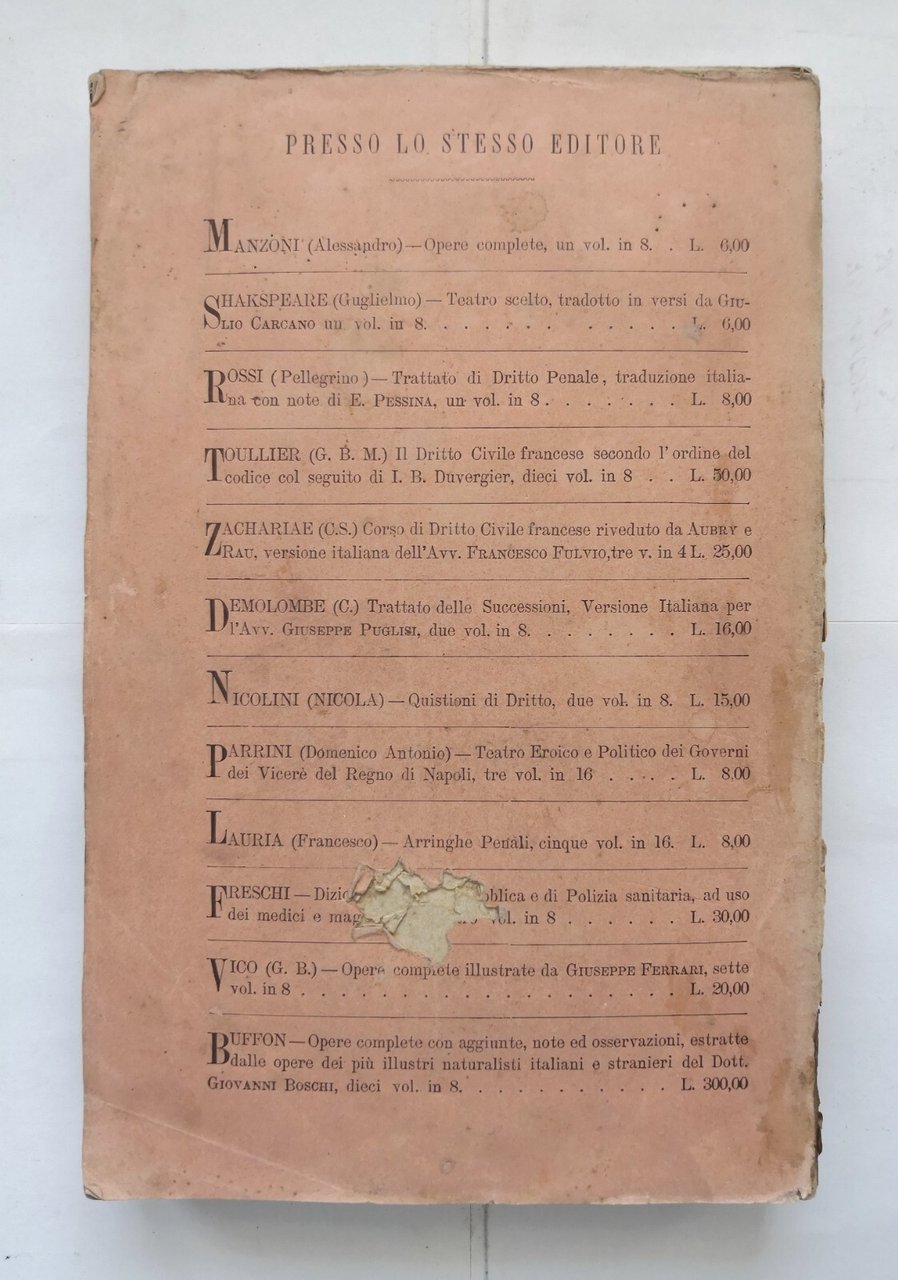 PRESSO LO STESSO EDITORE
MANZONI (Alessandro) — Opere complete, un vol. in 8. . L. 6,00
SHAKSPEARE (Guglielmo) — Teatro scelto, tradotto in versi da GIU-
LIO CARCANO un vol. in 8. . . . . . . . . . . . L. 6,00
ROSSI (Pellegrino) — Trattato di Dritto Penale, traduzione italia-
na con note di E. PESSINA, un vol. in 8 . . . . . . . L. 8,00
TOULLIER (G. B. M.) Il Dritto Civile francese secondo l'ordine del
codice col seguito di I. B. Duvergier, dieci vol. in 8 . . L. 50,00
ZACHARIAE (C.S.) Corso di Dritto Civile francese riveduto da AUBRY e
RAU, versione italiana dell'AVV. FRANCESCO FULVIO, tre v. in 4 L. 25,00
DEMOLOMBE (C.) Trattato delle Successioni, Versione Italiana per
l'AVV. GIUSEPPE PUGLISI, due vol. in 8. . . . . . . . L. 16,00
NICOLINI (NICOLA) — Quistioni di Dritto, due vol. in 8. L. 15,00
PARRINI (Domenico Antonio) — Teatro Eroico e Politico dei Governi
dei Vicerè del Regno di Napoli, tre vol. in 16 . . . . . L. 8,00
LAURIA (Francesco) — Arringhe Penali, cinque vol. in 16. L. 8,00
FRESCHI — di Polizia sanitaria, ad uso
dei medici e vol. in 8 . . . . . . L. 30,00
VICO (G. B.) — Opere complete illustrate da GIUSEPPE FERRARI, sette
vol. in 8 . . . . . . . . . . . . . . . . . . . L. 20,00
BUFFON — Opere complete con aggiunte, note ed osservazioni, estratte
dalle opere dei più illustri naturalisti italiani e stranieri del Dott.
GIOVANNI BOSCHI, dieci vol. in 8. . . . . . . . . . . L. 300,00